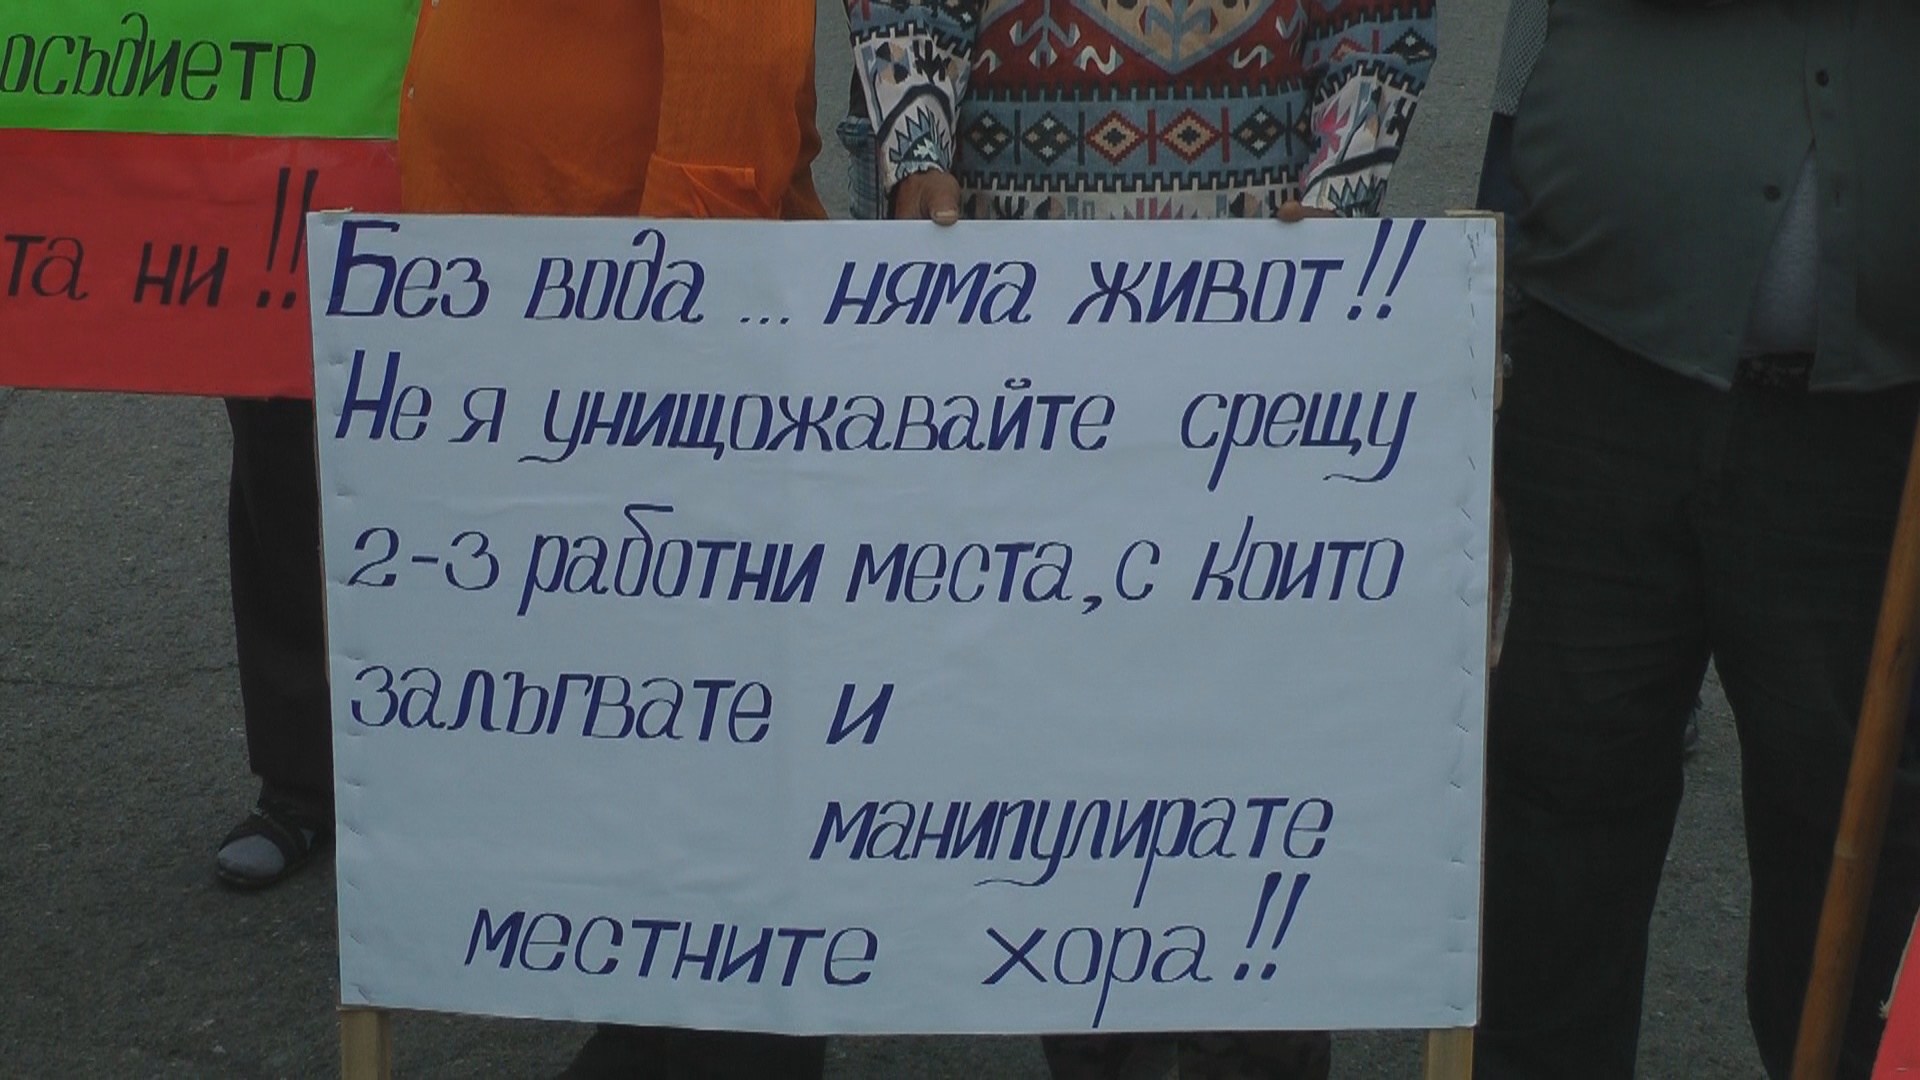 та ни!!
Без вода ... няма живот!!
Не я унищожавайте срещу
2-3 работни места, с които
залъгвате и
манипулирате
местните хора!!